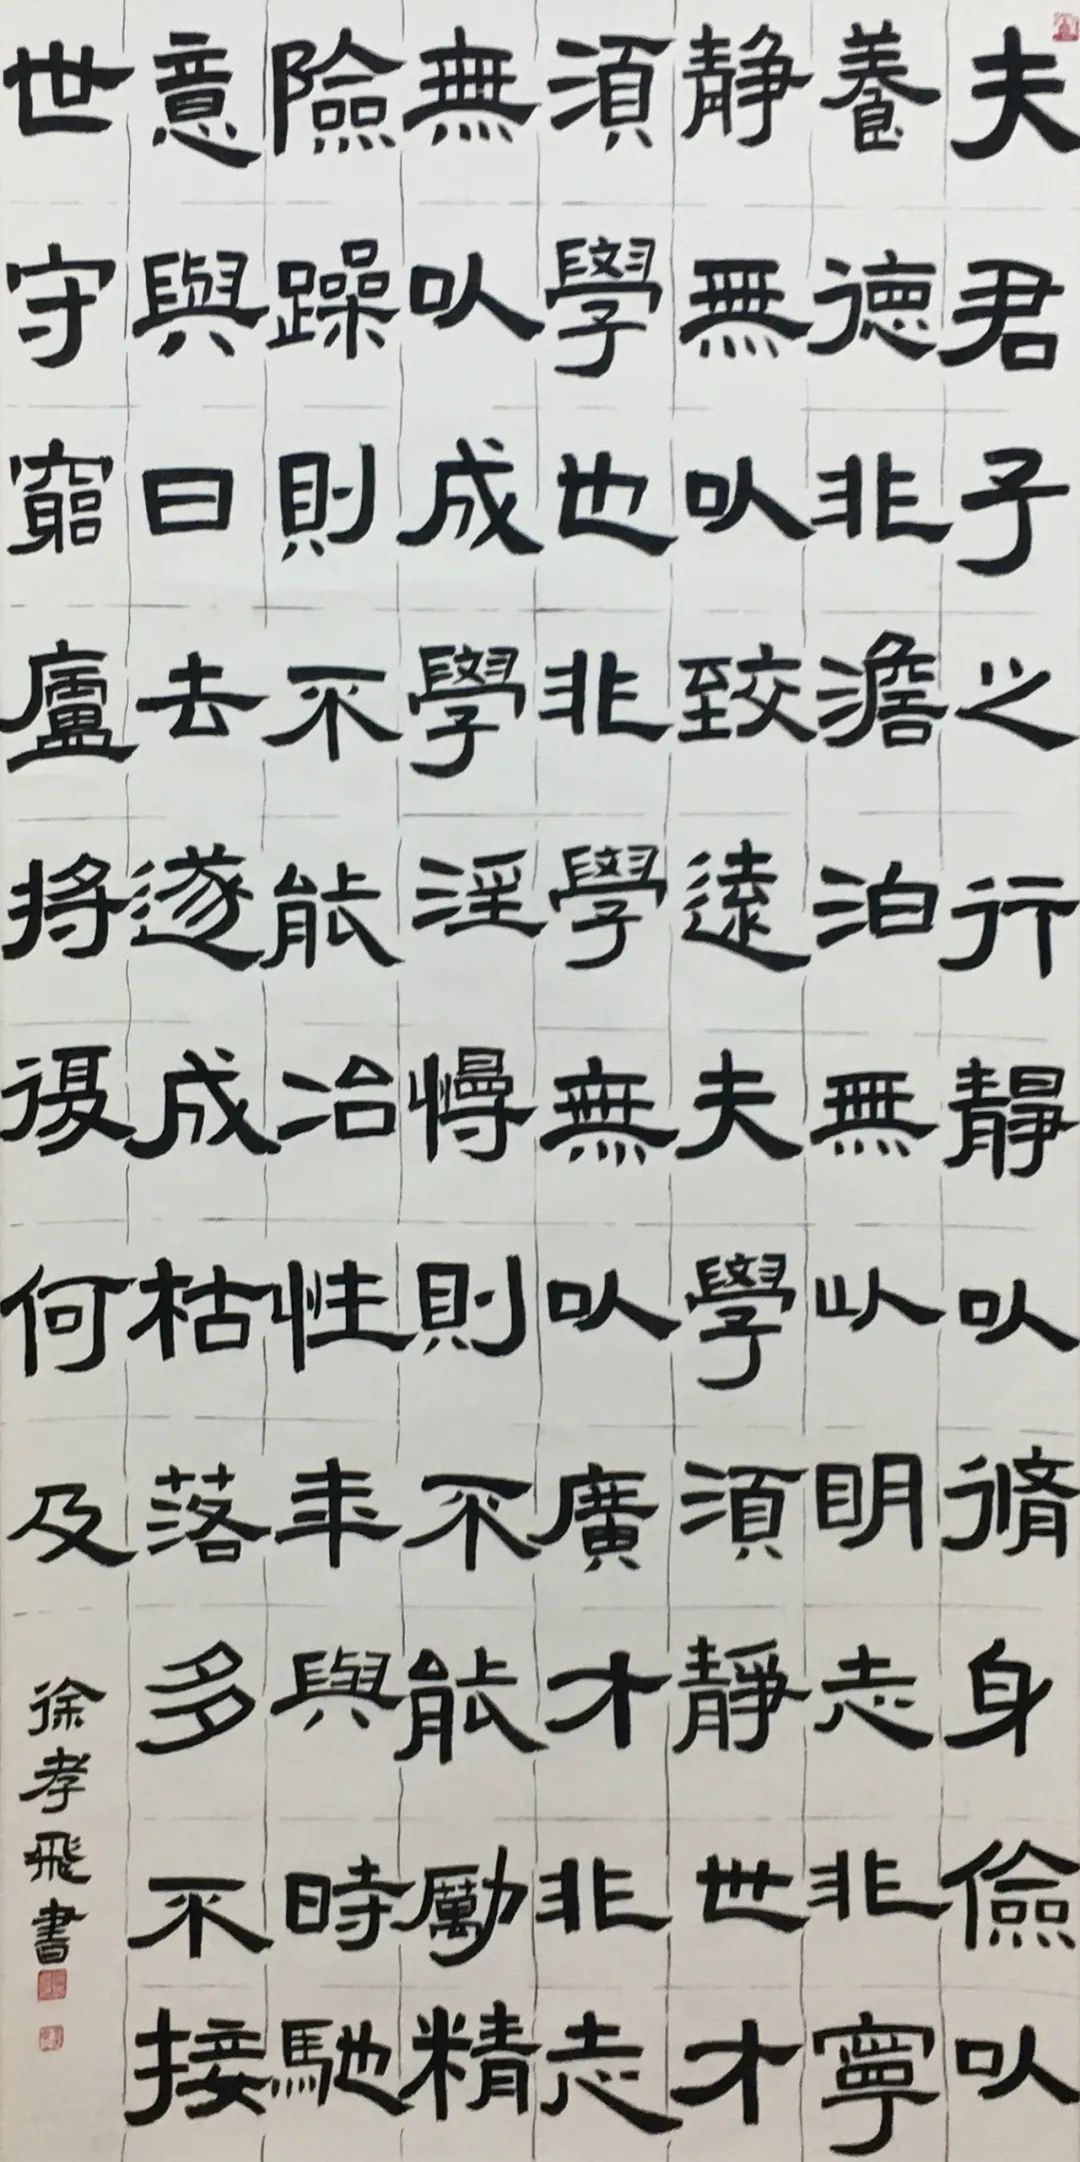 夫君子之行靜以脩身儉以
養德非澹泊無以明志非寧
静無以致遠夫學須靜世才
須學也非學無以廣才非志
無以成學淫慢則不能勵精
險躁則不能冶性年與時馳
意與日去遂成枯落多不接
世守窮廬將復何及
徐孝飛書